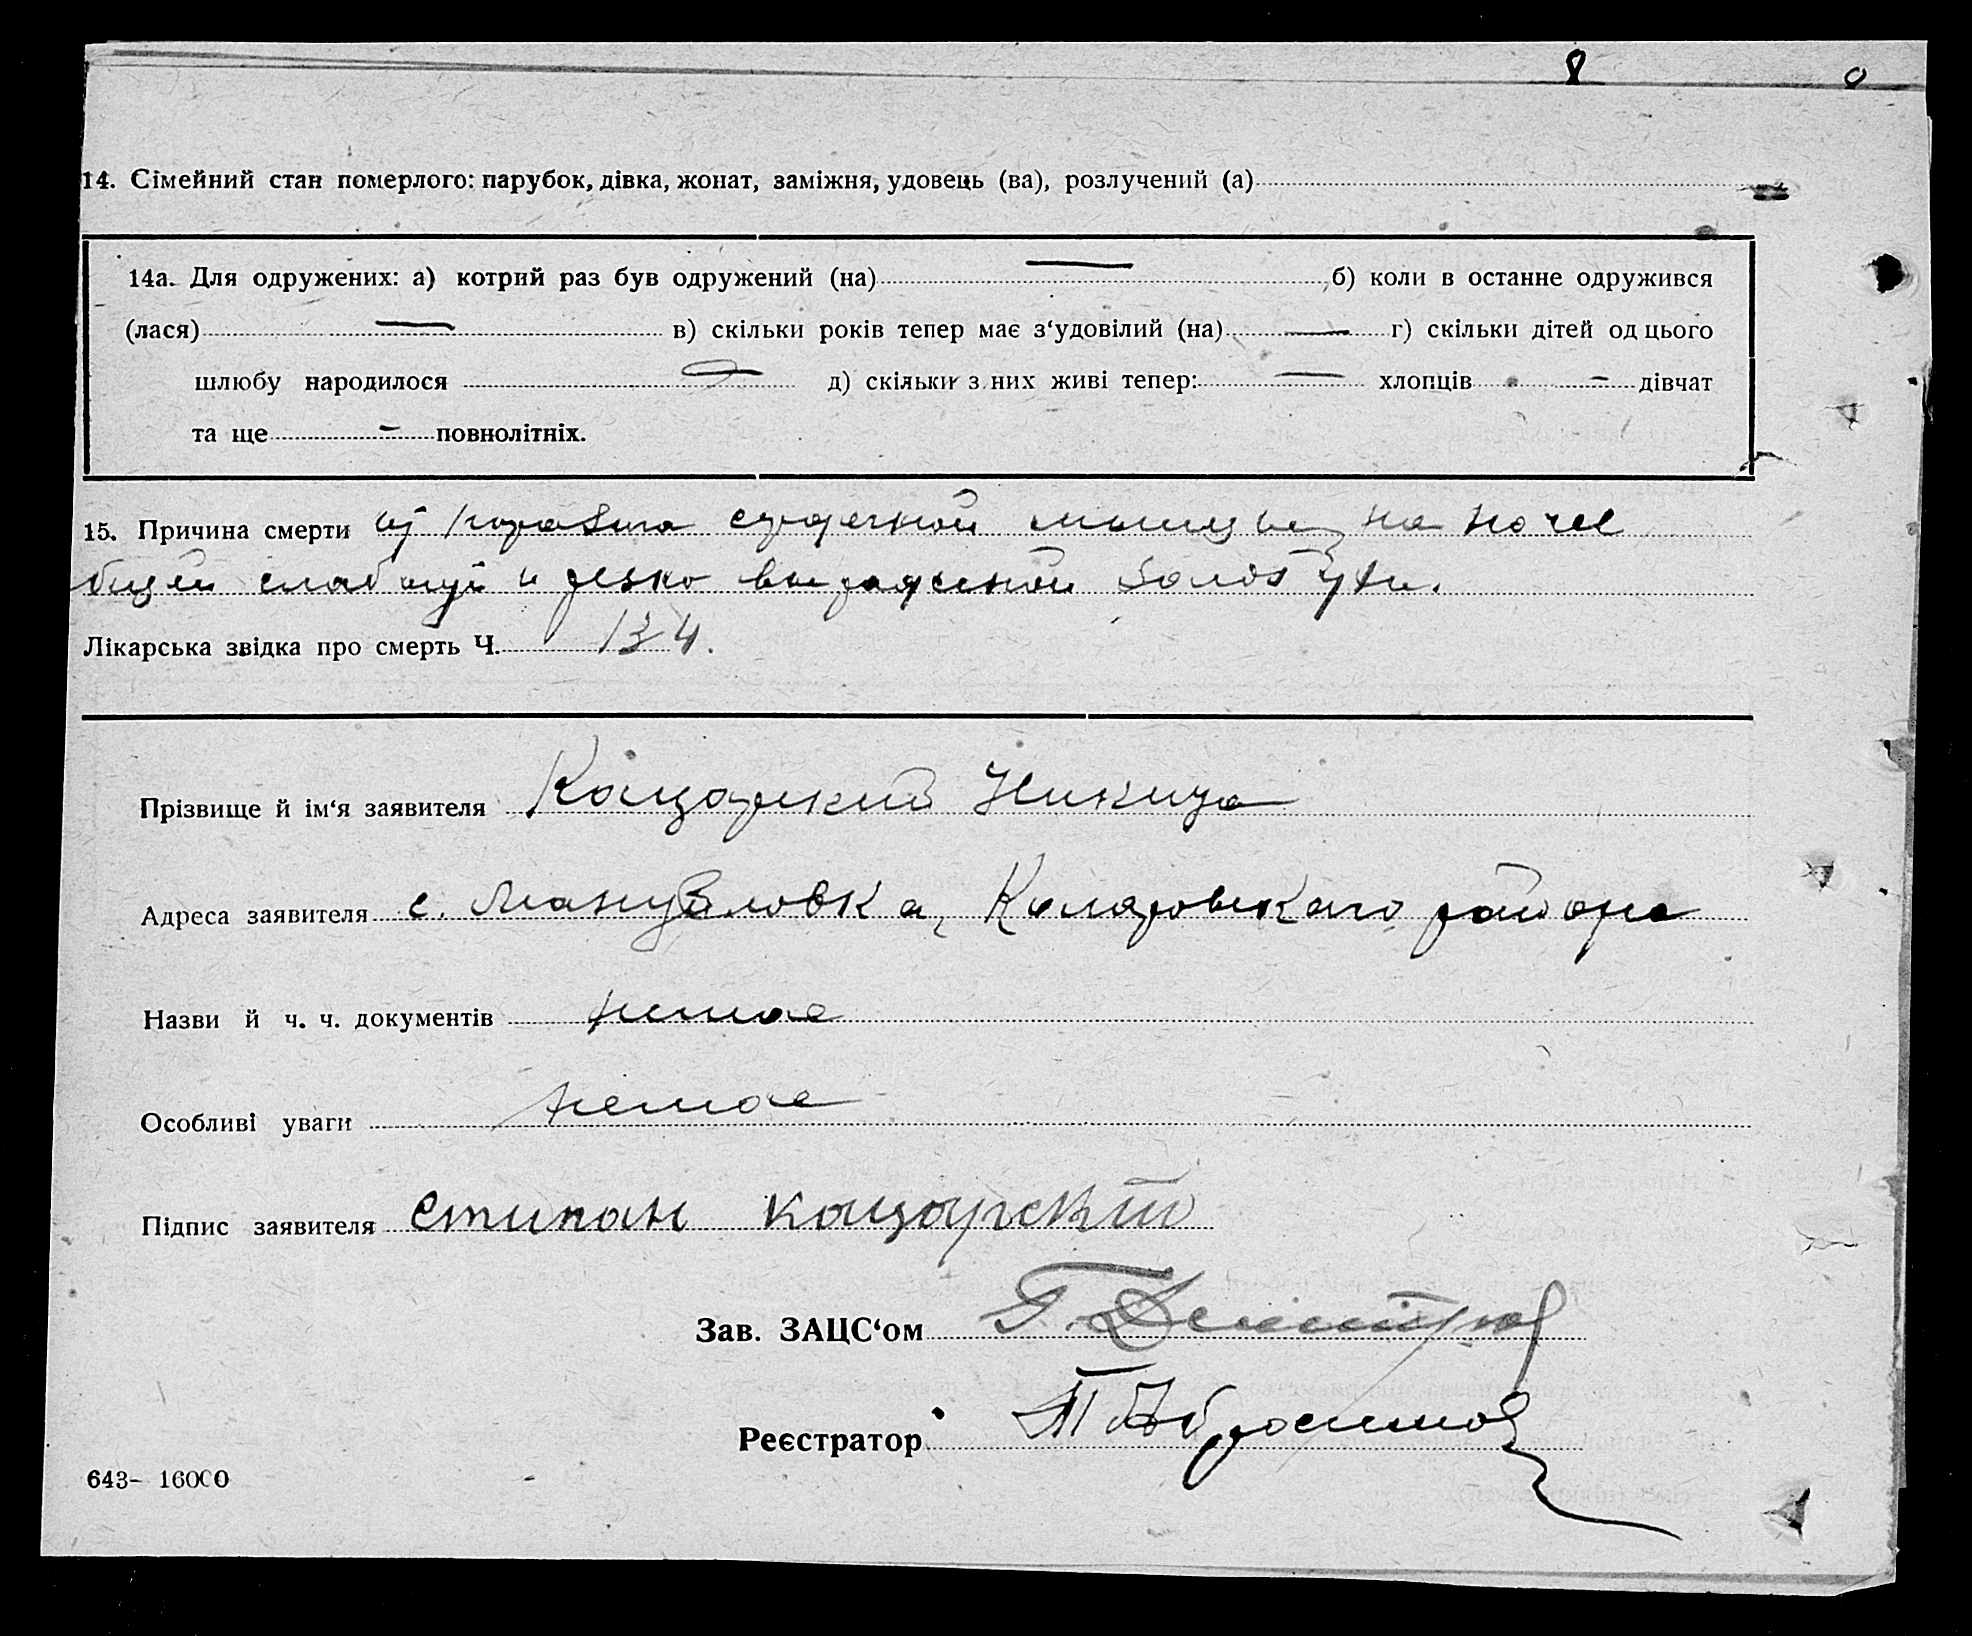 8
14. Сімейний стан померлого: парубок, дівка, жонат, заміжня, удовець (ва), розлучений (а)
14а. Для одружених: а) котрий раз був одружений (на) — б) коли в останне одружився
(лася) — в) скільки років тепер має з‘удовілий (на) — г) скільки дітей од цього
шлюбу народилося — д) скільки з них живі тепер: — хлопців - дівчат
та ще - повнолітніх.
15. Причина смерти от паралича сердечной мышцы, на почве
бщей слабости и резко выраженной золотухи.
Лікарська звідка про смерть Ч. 134.
Прізвище й ім‘я заявителя Кацарский Никита
Адреса заявителя с. Мануйловка, Коларовского района
Назви й ч. ч. документів немае
Особливі уваги немае
Підпис заявителя Стипан Кацарский
Зав. ЗАЦС‘ом
Реєстратор
643- 16000